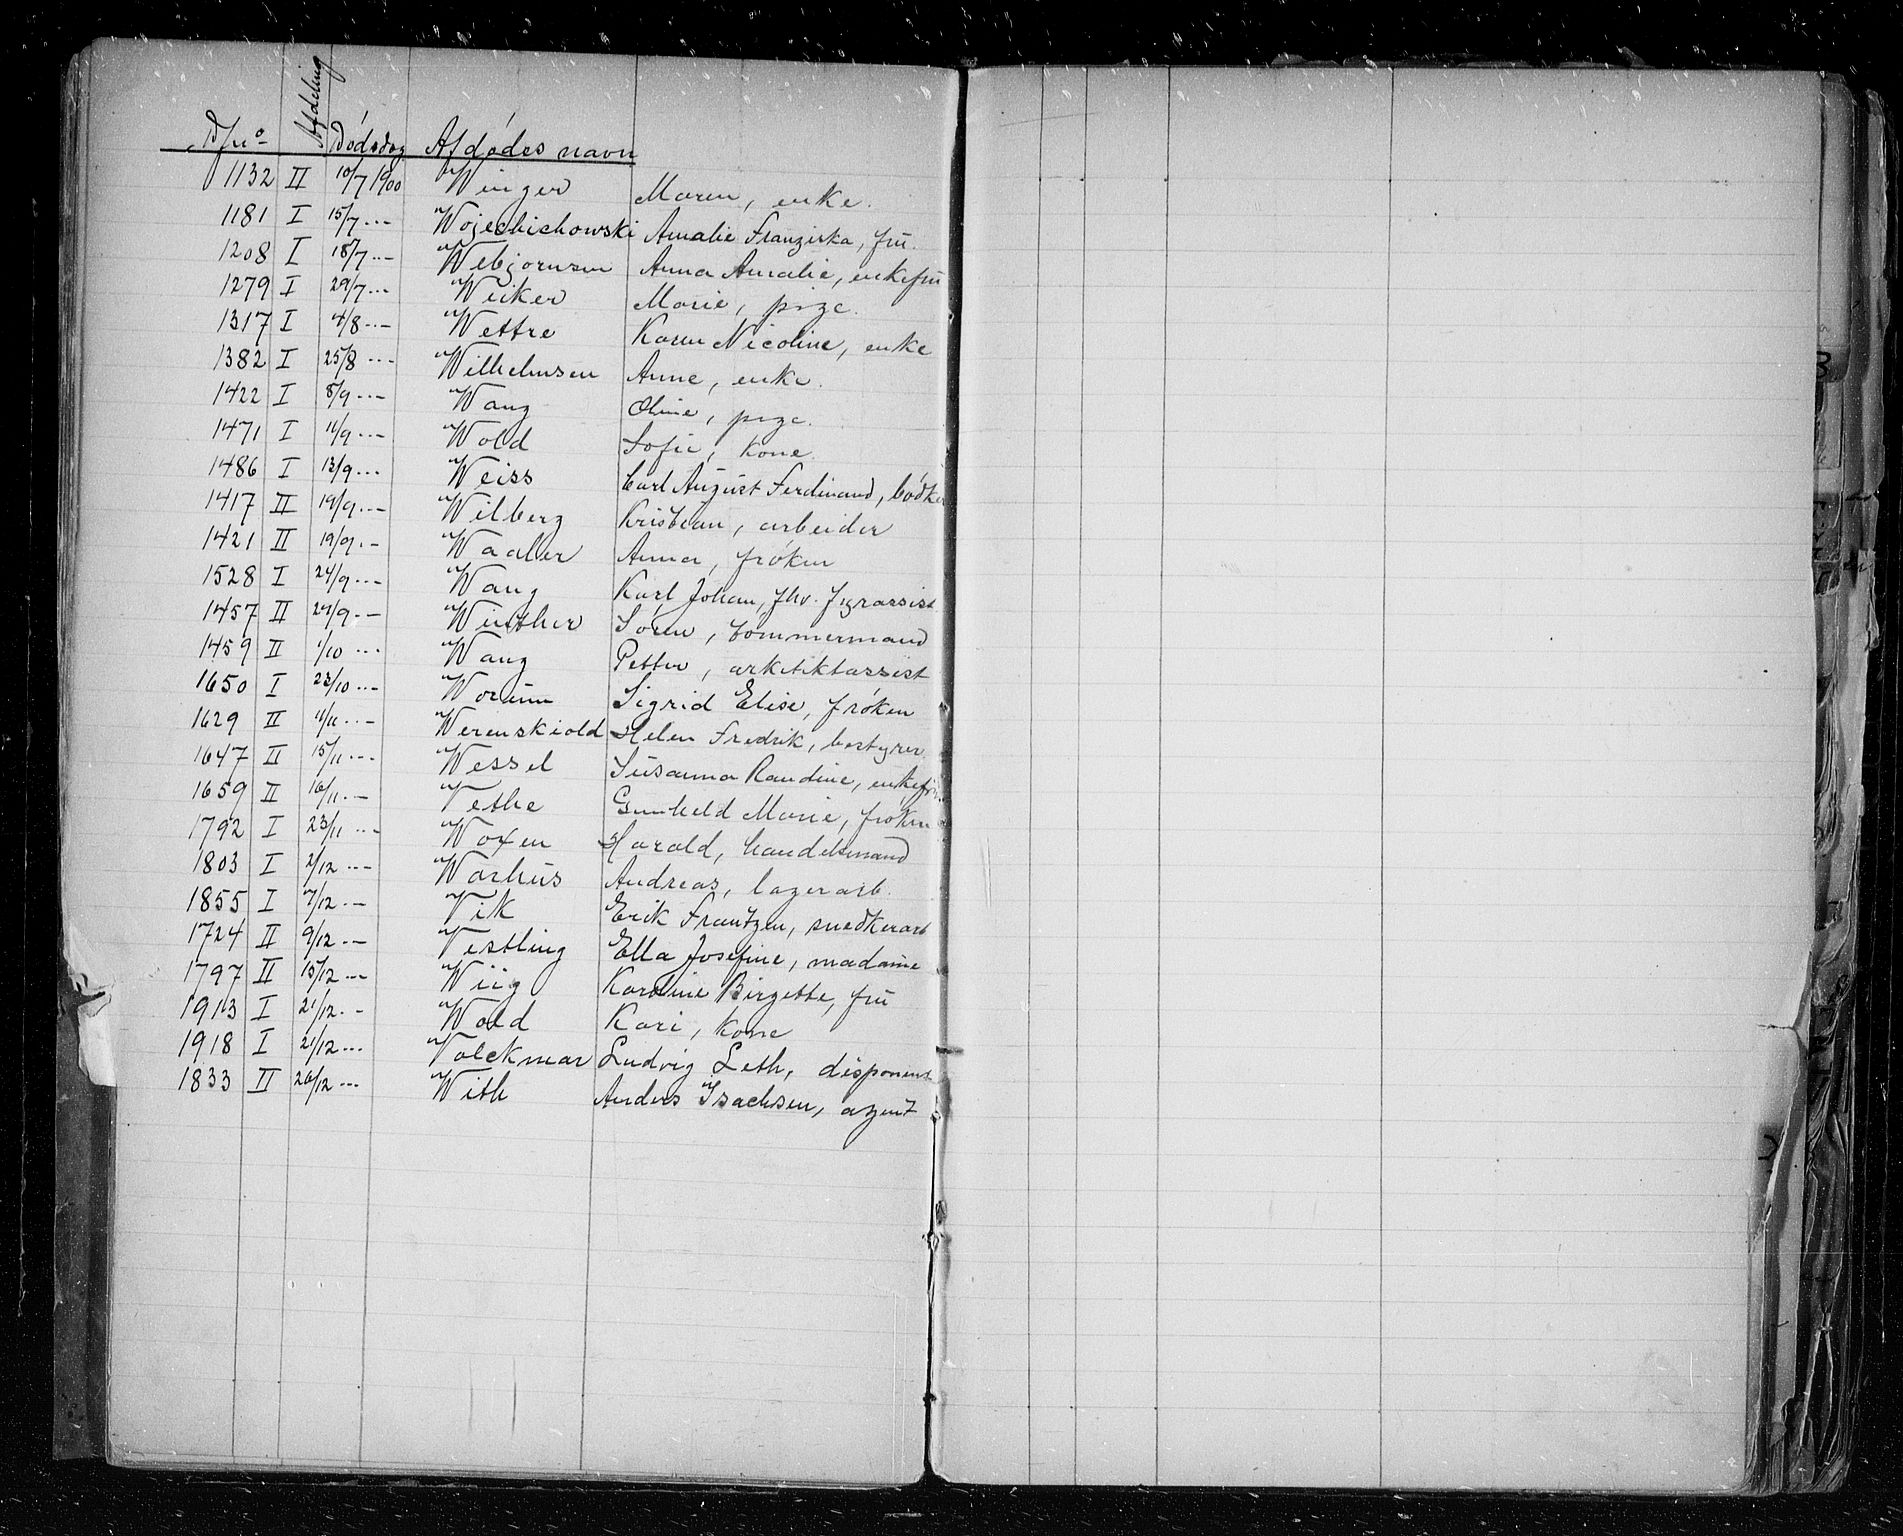 D/no Afdeling Dødsdag Afdødes navn
1132 II 10/7 1900 Winger Maren, enke.
1181 I 15/7 --- Wojechichowski Amalie Franziska, fru.
1208 I 18/7 --- Webjørnsen Anna Amalie, enkefru
1279 I 29/7 --- Weiker Marie, pige.
1317 I 4/8 --- Wettre Karen Nicoline, enke
1382 I 25/8 --- Wilhelmsen Anne, enke.
1422 I 8/9 --- Wang Oline, pige.
1471 I 11/9 --- Wold Sofie, kone.
1486 I 13/9 --- Weiss Carl August Ferdinand, bødker
1417 II 19/9 --- Wilberg Kristian, arbeider
1421 II 19/9 -- Waaler Anna, frøken
1528 I 24/9 --- Wang Karl Johan, fhv.
1457 II 29/9 -- Winther Søren, tømmermand
1459 II 1/10 --- Wang Petter, arkitektassist
1650 I 23/10 --- Worum Sigrid Elise, frøken
1629 II 11/11 --- Werenskiold Helen Fredrik, bestyrer
1647 II 15/11 --- Wessel Susanna Randine, enkefru
1659 II 16/11 --- Vethe Gunhild Marie, frøken
1792 I 23/11 --- Woxen Harald, handelsmand
1803 I 2/12 --- Warhus Andreas, lagerarb.
1855 I 7/12 --- Vik Erik Frantzen, snedkerarb
1724 II 9/12 --- Vestling Ella Josefine, madame
1797 II 15/12 --- Wiig Karoline Birgette, fru
1913 I 21/12 -- Wold Kari, kone
1918 I 21/12 --- Volckmar Ludvig Leth, disponent
1833 II 26/12 --- With Anders Isachsen, agent